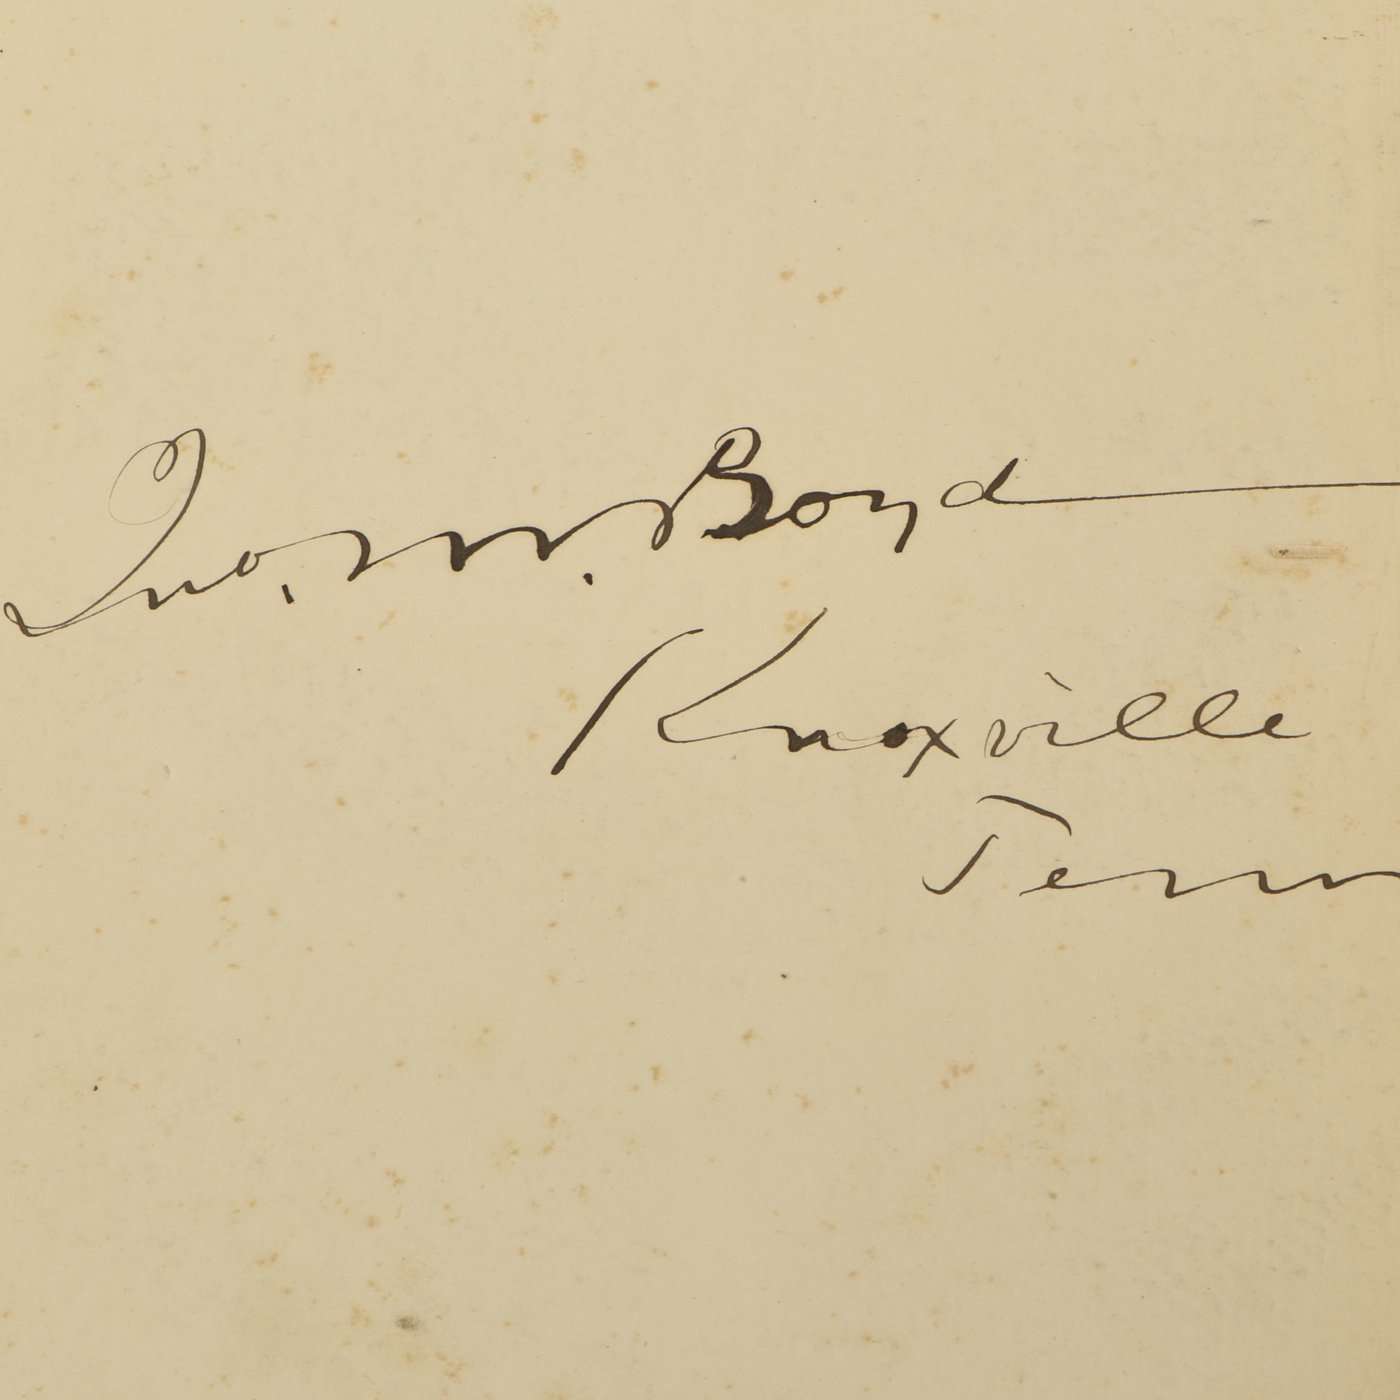 Jno. M. Boyd
Knoxville
Tenn